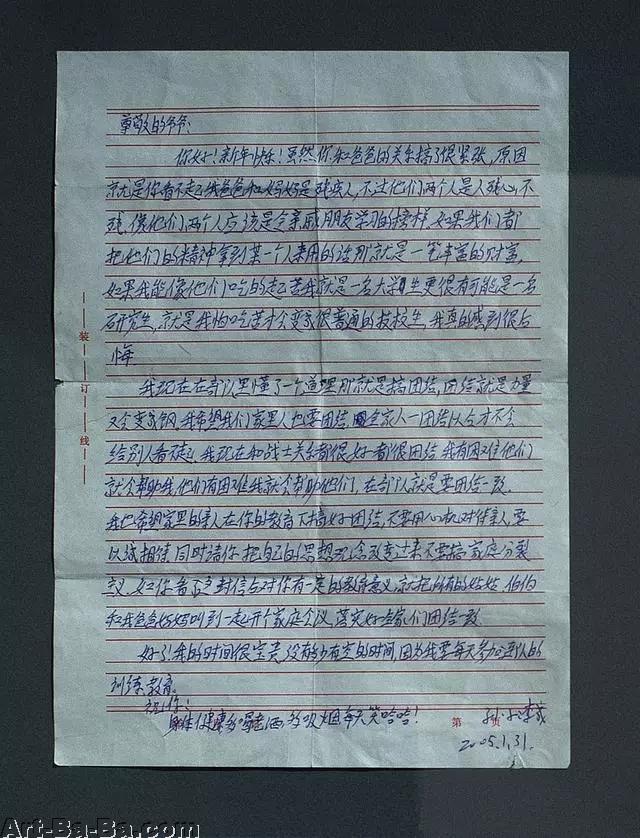 尊敬的爷爷:
你好!新年快乐!虽然你和爸爸的关系搞了很紧张,原因
就是你看不起我爸爸和妈妈是残疾人,不过他们两个人是人残心不
残,像他们两个人应该是令亲戚朋友学习的榜样,如果我们都
把他们的精神拿到某一个人来用的话那就是一笔丰富的财富,
如果我能像他们吃的起苦我就是一名大学生更很有可能是一名
研究生,就是我怕吃苦才会变成很普通的技校生,我真的感到很后
悔
我现在在部队里懂了一个道理那就是搞团结,团结就是力量
又会变成钢,我希望我们家里人也要团结,全家人一团结以后才不会
给别人看不起,我现在和战士关系都很好都很团结,我有困难他们
就会帮助我,他们有困难我就会帮助他们,在部队就是要团结一致。
我也希望家里的亲人在你的教育下搞好团结,不要用心机对待亲人,要
以诚相待,同时请你把自己的思想观念改变过来不要搞家庭分裂
主义,如你看了这封信后对你有一定的教育意义,就把所有的姑姑、伯伯
和我爸爸妈妈叫到一起开个家庭会议,落实好 家们团结一致
好了!我的时间很宝贵,没有多少有空的时间,因为我要每天参加部队的
训练教育。
祝你:
身体健康多喝老酒,多吸烟每天笑哈哈!
第 页
孙:李
2005.1.31.
装
订
线
Art-Ba-Ba.com